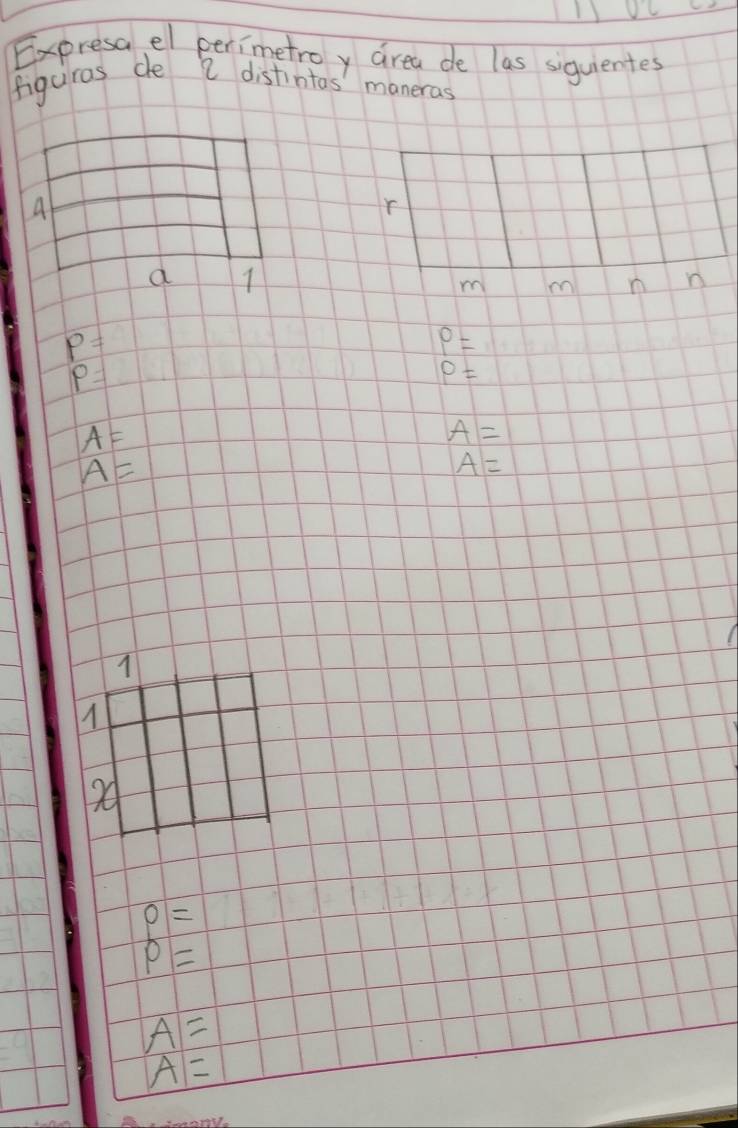 Expresa el perímetro y área de las siguientes
figuras de 2 distintas maneras
4
a 1
r
m m n n
P=
P=
P=
P=
A=
A=
A=
A=
1
1
x
P=
P=
A=
A=